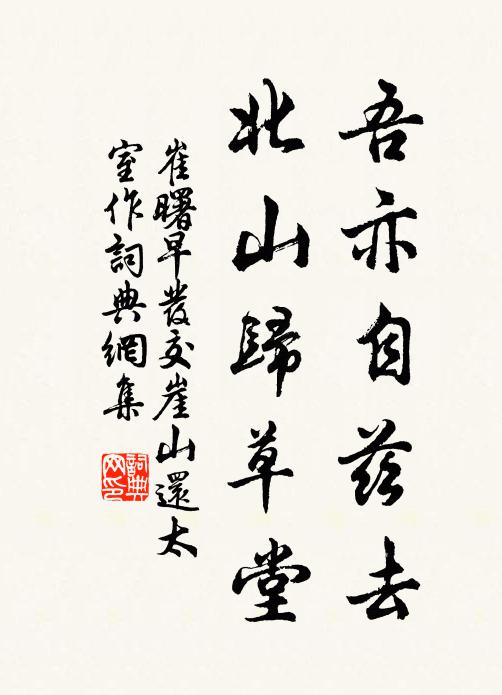 吾亦自茲去
北山歸草堂
崔曙早發交崖山還太
室作詞典網集
詞典网印